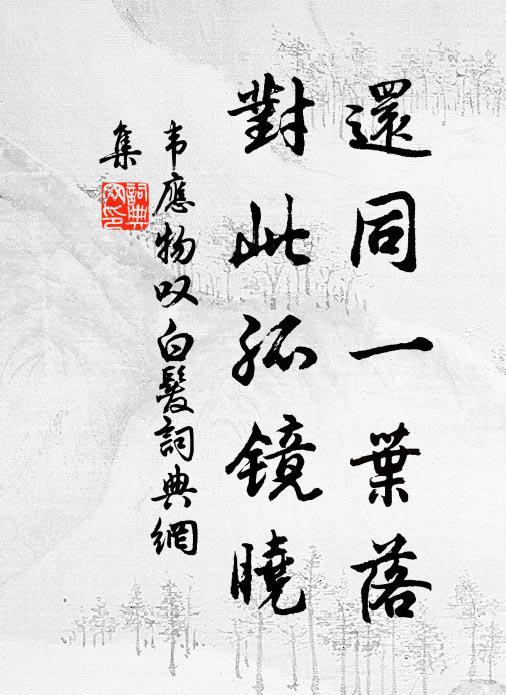 還同一葉落
對此孤鏡曉
韦應物叹白髮詞典網
集
詞典網印